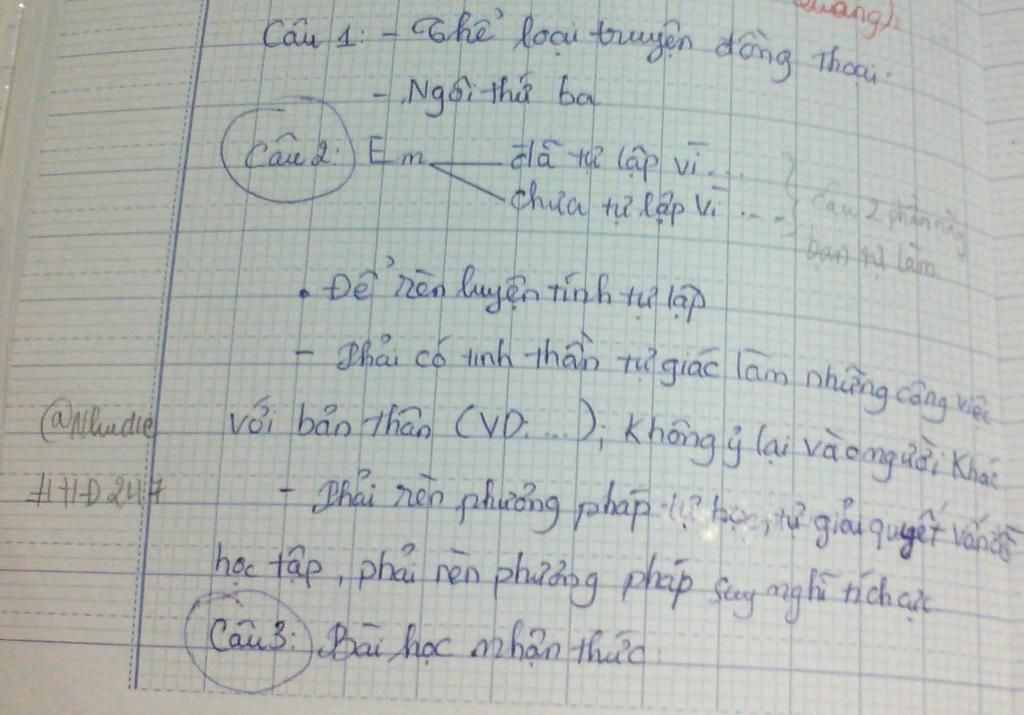 Quang).
Câu 1: - Thể loại truyện đồng thoại.
- Ngôi thứ ba
Câu 2: Em đã tự lập vì...
chưa tự lập vì ...
Câu 2 phần này
bạn tự làm
• Để rèn luyện tính tự lập
- Phải có tinh thần tự giác làm những công việc
với bản thân (VD: ...); Không ỷ lại vào người khác
- Phải rèn phương pháp tự học, tự giải quyết vấn đề
học tập, phải rèn phương pháp suy nghĩ tích cực
Câu 3: Bài học nhận thức: